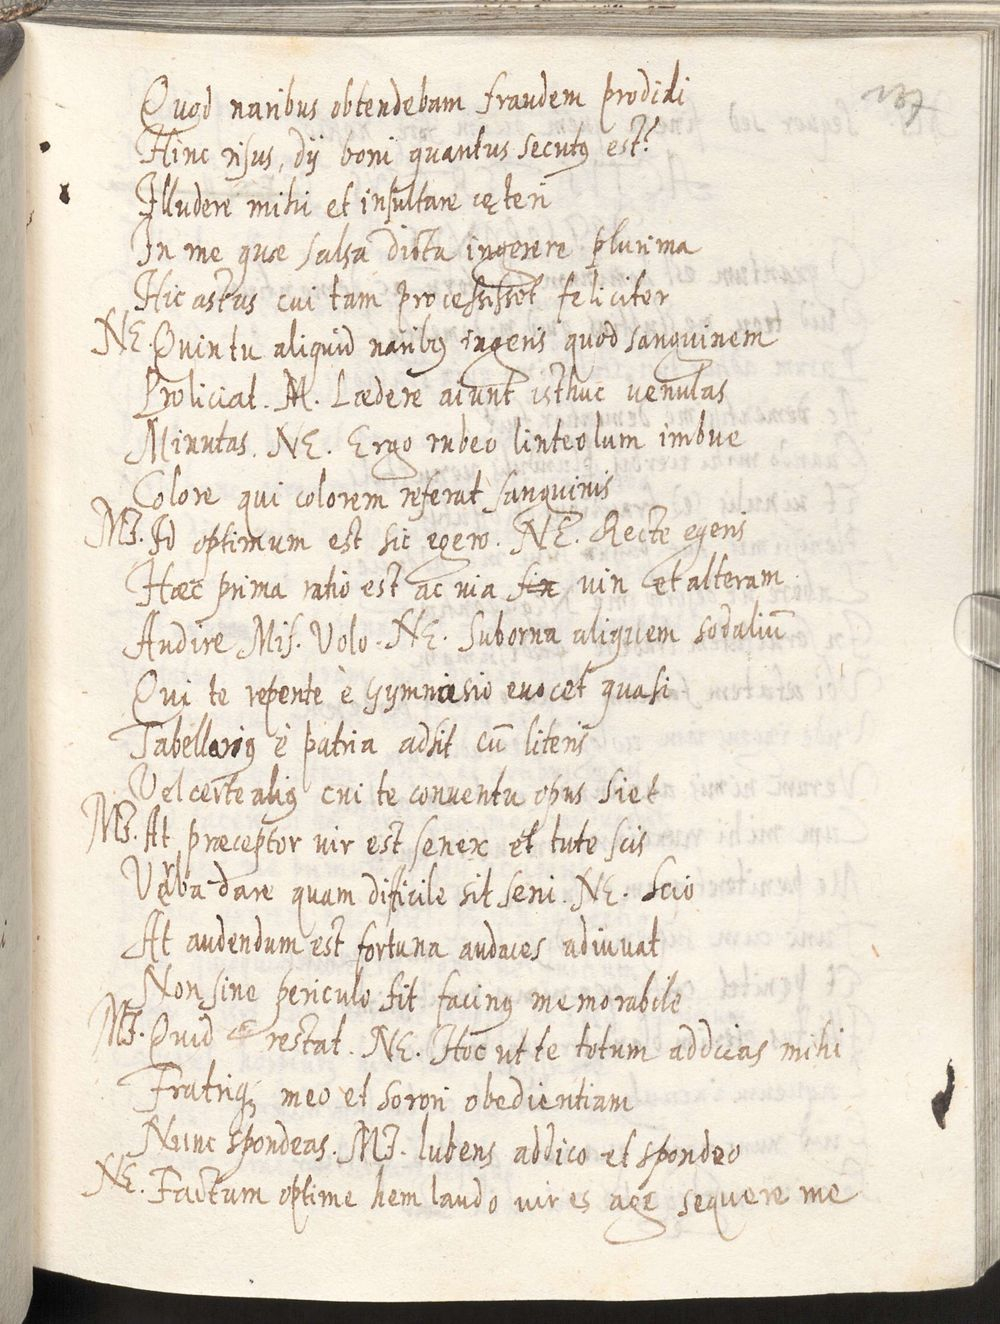 Quod naribus obtendebam fraudem prodidi
Hinc risus, dij boni quantus secutus est?
Illudere mihi et insultare cęteri
In me quse salsa dicta ingerere plurima
Hic astus cui tam processisset feliciter
NE. Quin tu aliquid naribus ingeris quod sanguinem
Proliciat. M. Lædere aiunt isthuc venulas
Minutas. NE. Ergo rubeo linteolum imbue
Colore qui colorem referat sanguinis
MI. Id optimum est sic egero. NE. Recte egeris
Hæc prima ratio est ac via vin et alteram
Audire Mis. Volo. NE. Suborna aliquem sodaliū
Qui te repente è Gymnasio euocet quasi
Tabellarius è patria adsit cū literis
Vel certe alius cui te conventu opus siet
MI. At præceptor vir est senex et tute scis
Verba dare quam dificile sit seni. NE. Scio
At audendum est fortuna audaces adiuuat
Non sine periculo fit facinus memorabile
MI. Quid restat. NE. Hoc ut te totum addicas mihi
Fratrique meo et sorori obedientiam
Nunc spondeas. MI. lubens addico et spondeo
NE. Factum optime hem laudo vir es age sequere me